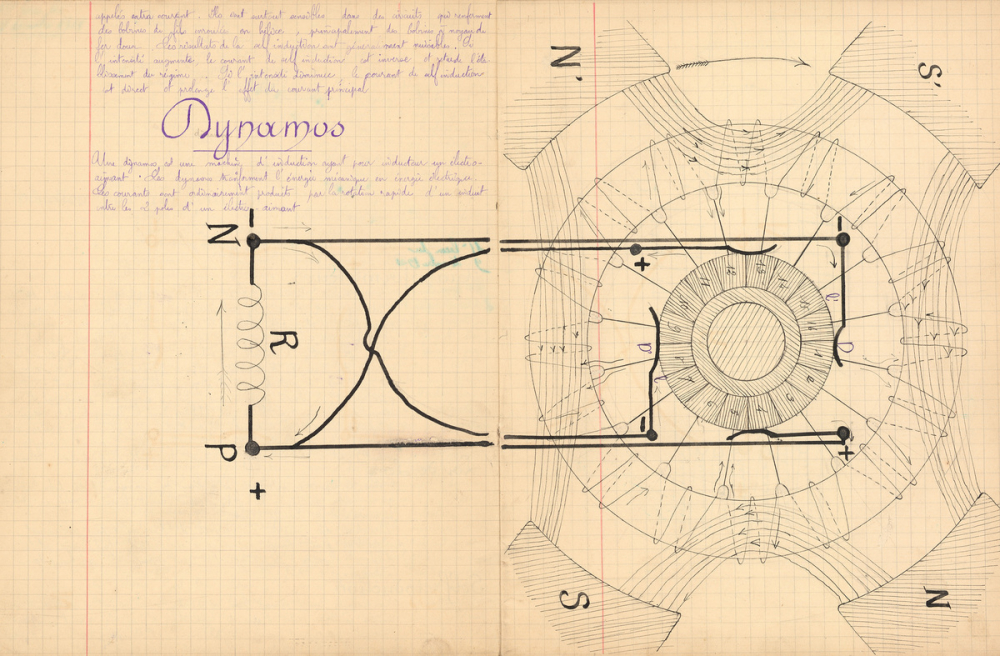 appelés extra courant. Ils sont surtout sensibles dans des circuits qui renferment
des bobines de fil enroulé en hélice, principalement des bobines à noyau de
fer doux. Les résultats de la self induction sont généralement nuisibles. Si
l'intensité augmente, le courant de self induction est inverse et retarde l'éta-
blissement du régime. Si l'intensité diminue, le courant de self induction
est direct et prolonge l'effet du courant principal
Dynamos
Une dynamo est une machine d'induction ayant pour inducteur un électro-
aimant. Les dynamos transforment l'énergie mécanique en énergie électrique.
Les courants sont ordinairement produits par la rotation rapide d'un induit
entre les 2 pôles d'un électro aimant
N'
S'
N -
R
P +
+
-
-
+
S
N